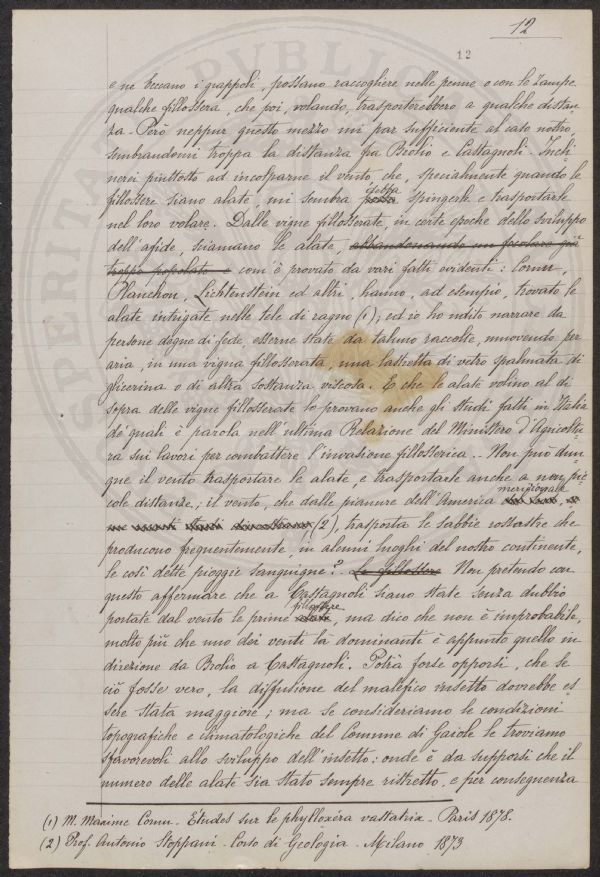 12
12
e ne beccano i grappoli, possano raccogliere nelle penne e con le zampe
qualche fillossera, che poi, volando, trasporterebbero a qualche distan-
za. Però neppur questo mezzo mi par sufficiente al caso nostro,
sembrandomi troppa la distanza fra Brolio e Castagnoli. Incli-
nerei piuttosto ad incolparne il vento che, specialmente quando le
fillossere siano alate, mi sembra possa spingerle e trasportarle
nel loro volare. Dalle vigne fillosserate, in certe epoche dello sviluppo
dell'afide, sciamano le alate, abbandonando un focolare già
troppo popolato e com'è provato da vari fatti evidenti: Cornu,
Planchon, Lichtenstein ed altri, hanno, ad esempio, trovato le
alate intrigate nelle tele di ragno (1), ed io ho udito narrare da
persone degne di fede, esserne state da taluno raccolte, muovendo per
aria, in una vigna fillosserata, una lastretta di vetro spalmata di
glicerina o di altra sostanza viscosa. E che le alate volino al di
sopra delle vigne fillosserate lo provano anche gli studi fatti in Italia
de' quali è parola nell'ultima Relazione del Ministero d'Agricoltu-
ra sui lavori per combattere l'invasione fillosserica. Non può dun-
que il vento trasportare le alate, e trasportarle anche a non pic-
cole distanze; il vento, che dalle pianure dell'America meridionale
(2), trasporta le sabbie rossastre che
producono frequentemente, in alcuni luoghi del nostro continente,
le così dette pioggie sanguigne? Non pretendo con
questo affermare che a Castagnoli siano state senza dubbio
portate dal vento le prime fillossere, ma dico che non è improbabile,
molto più che uno dei venti là dominanti è appunto quello in
direzione da Brolio a Castagnoli. Potrà forse opporsi, che se
ciò fosse vero, la diffusione del malefico insetto dovrebbe es-
sere stata maggiore; ma se consideriamo le condizioni
topografiche e climatologiche del Comune di Gaiole le troviamo
sfavorevoli allo sviluppo dell'insetto: onde è da supporsi che il
numero delle alate sia stato sempre ristretto, e per conseguenza
(1) M. Maxime Cornu. Études sur le phylloxéra vastatrix. Paris 1878.
(2) Prof. Antonio Stoppani. Corso di Geologia. Milano 1873